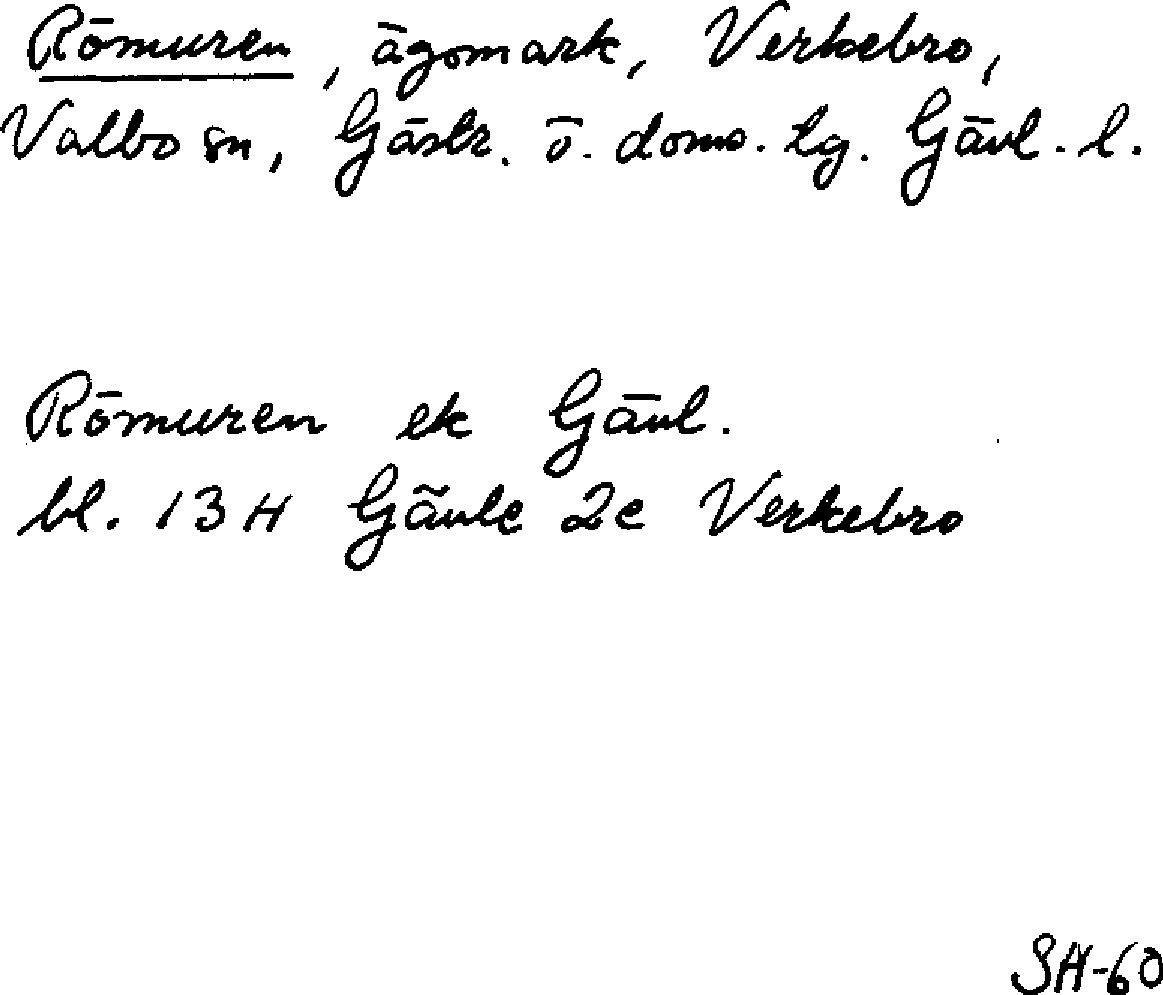 Römuren, ägomark, Verkebro,
Valbo sn, Gästr. ö. doms. tg. Gävl. l.
Römuren ek Gävl.
bl. 13 H Gävle 2c Verkebro
SH-60